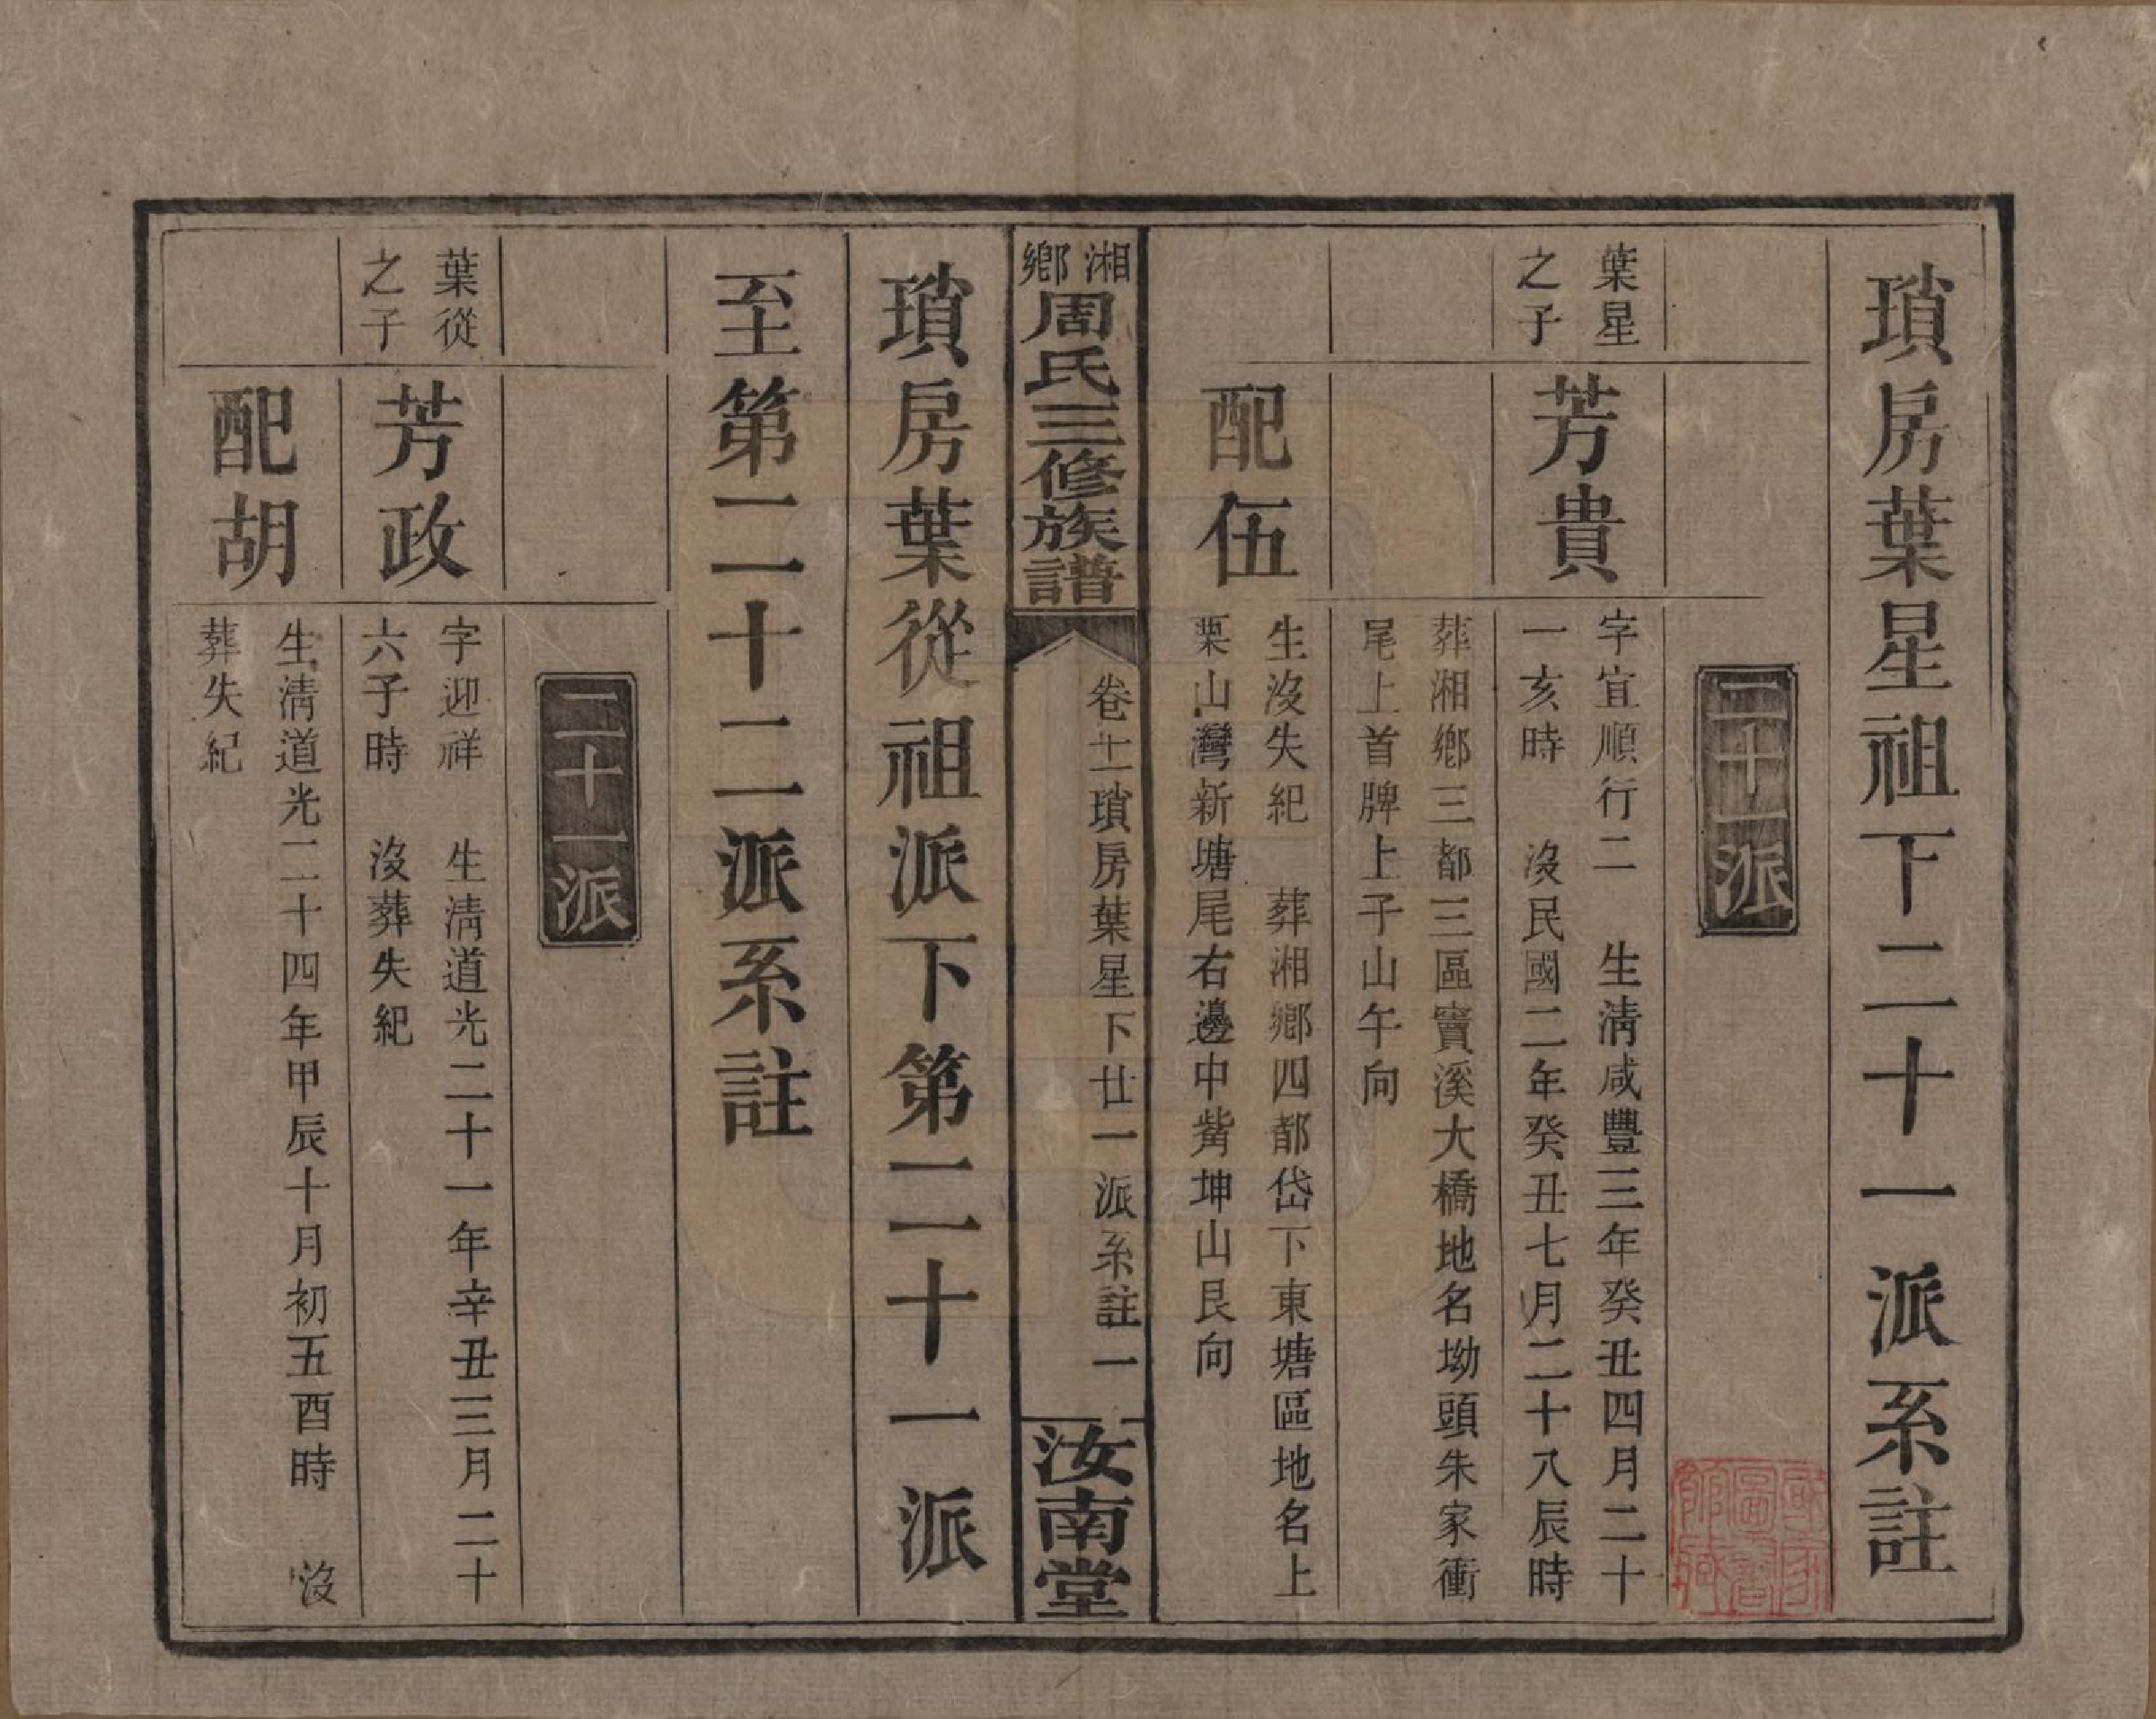 瑣房葉星祖下二十一派系註
二十一派
葉星
之子
芳貴
字宜順行二　生清咸豐三年癸丑四月二十
一亥時　沒民國二年癸丑七月二十八辰時
葬湘鄉三都三區竇溪大橋地名坳頭朱家衝
尾上首牌上子山午向
配伍
生沒失紀　葬湘鄉四都岱下東塘區地名上
栗山灣新塘尾右邊中觜坤山艮向
湘鄉周氏三修族譜
卷十一瑣房葉星下廿一派系註　一
汝南堂
瑣房葉從祖派下第二十一派
至第二十二派系註
二十一派
葉從
之子
芳政
字迎祥　生清道光二十一年辛丑三月二十
六子時　沒葬失紀
配胡
生清道光二十四年甲辰十月初五酉時　沒
葬失紀